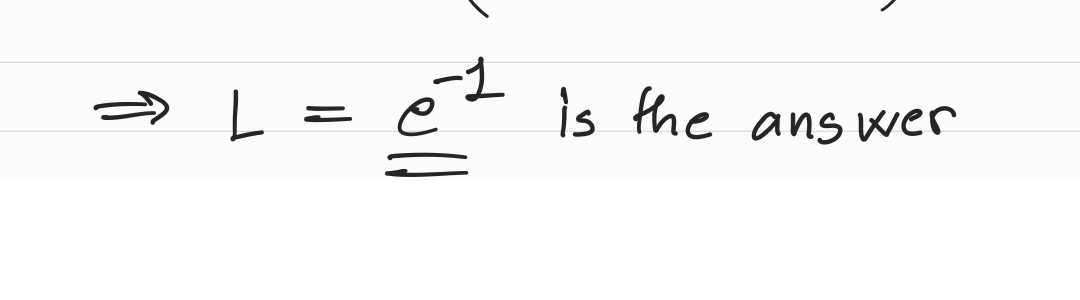 ⇒ L = e⁻¹ is the answer